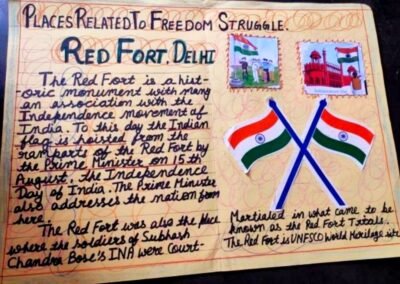 PLACES RELATED TO FREEDOM STRUGGLE.
RED FORT, DELHI
The Red Fort is a hist-
oric monument with many
an association with the
Independence movement of
India. To this day the Indian
flag is hoisted from the
ramparts of the Red Fort by
the Prime Minister on 15th
August, the Independence
Day of India. The Prime Minister
also addresses the nation from
here.
The Red Fort was also the place
where the soldiers of Subhash
Chandra Bose's INA were Court-
Martialed in what came to be
known as the Red Fort Trials.
The Red Fort is UNESCO World Heritage site